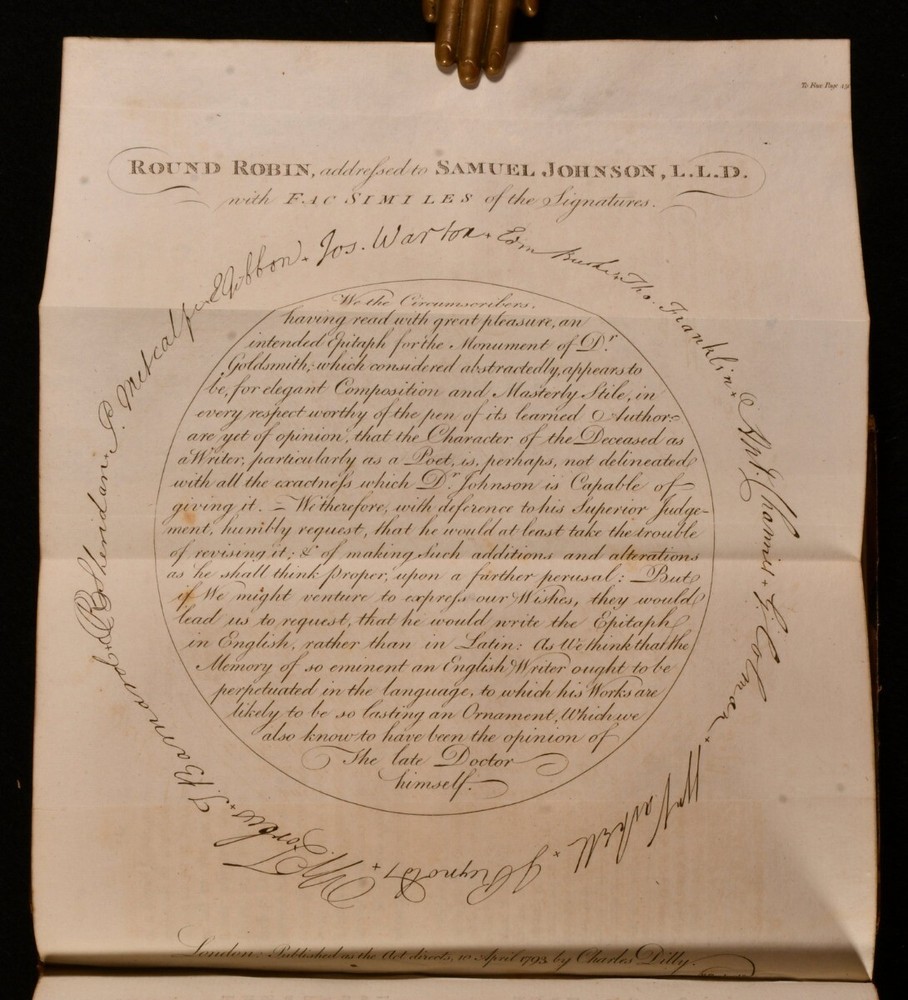 To Face Page
ROUND ROBIN, addressed to SAMUEL JOHNSON, L.L.D.
with FAC SIMILES of the Signatures.
We the Circumscribers,
having read with great pleasure, an
intended Epitaph for the Monument of Dr.
Goldsmith; which considered abstractedly, appears to
be, for elegant Composition and Masterly Stile, in
every respect worthy of the pen of its learned Author;
are yet of opinion, that the Character of the Deceased as
a Writer, particularly as a Poet, is, perhaps, not delineated
with all the exactness which Dr. Johnson is Capable of
giving it. – We therefore, with deference to his Superior Judge-
ment, humbly request, that he would at least take the trouble
of revising it; & of making Such additions and alterations
as he shall think proper, upon a farther perusal: But
if We might venture to express our Wishes, they would
lead us to request, that he would write the Epitaph
in English, rather than in Latin: As We think that the
Memory of so eminent an English Writer ought to be
perpetuated in the language, to which his Works are
likely to be so lasting an Ornament, Which we
also know to have been the opinion of
The late Doctor
himself.
E Gibbon + Jos. Warton + Edm Burke + Tho. Franklin + Ant. Chamier + G. Colman + Wm Vashell + J Reynolds + W Forbes + T. Barnard + R B Sheridan P. Metcalfe
London: Published as the Act directs, 10 April 1793, by Charles Dilly.